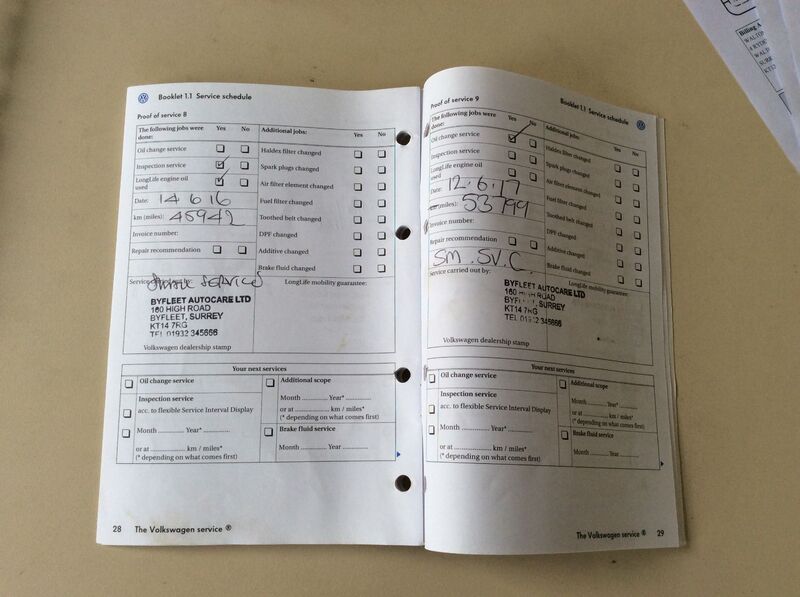 Booklet 1.1 Service schedule
Proof of service 8
The following jobs were done: Yes No Additional jobs: Yes No
Oil change service
Haldex filter changed
Inspection service
Spark plugs changed
LongLife engine oil used
Air filter element changed
Date: 14 6 16
Fuel filter changed
km (miles): 45942
Toothed belt changed
Invoice number:
DPF changed
Repair recommendation
Additive changed
Brake fluid changed
Service carried out by:
LongLife mobility guarantee:
SERVICE
BYFLEET AUTOCARE LTD
160 HIGH ROAD
BYFLEET, SURREY
KT14 7RG
TEL 01932 345666
Volkswagen dealership stamp
Your next services
Oil change service
Additional scope
Inspection service
Month Year*
acc. to flexible Service Interval Display
or at km / miles*
(* depending on what comes first)
Month Year*
Brake fluid service
or at km / miles*
Month Year
(* depending on what comes first)
28 The Volkswagen service ®
Booklet 1.1 Service schedule
Proof of service 9
The following jobs were done: Yes No Additional jobs: Yes No
Oil change service
Haldex filter changed
Inspection service
Spark plugs changed
LongLife engine oil used
Air filter element changed
Date: 12.6.17
Fuel filter changed
km (miles): 53799
Toothed belt changed
Invoice number:
DPF changed
Repair recommendation
Additive changed
Brake fluid changed
SM. SV. C.
Service carried out by:
LongLife mobility guarantee:
BYFLEET AUTOCARE LTD
160 HIGH ROAD
BYFLEET, SURREY
KT14 7RG
TEL 01932 345666
Volkswagen dealership stamp
Your next services
Oil change service
Additional scope
Inspection service
Month Year*
acc. to flexible Service Interval Display
or at km / miles*
(* depending on what comes first)
Month Year*
Brake fluid service
or at km / miles*
Month Year
(* depending on what comes first)
The Volkswagen service ® 29
Billing